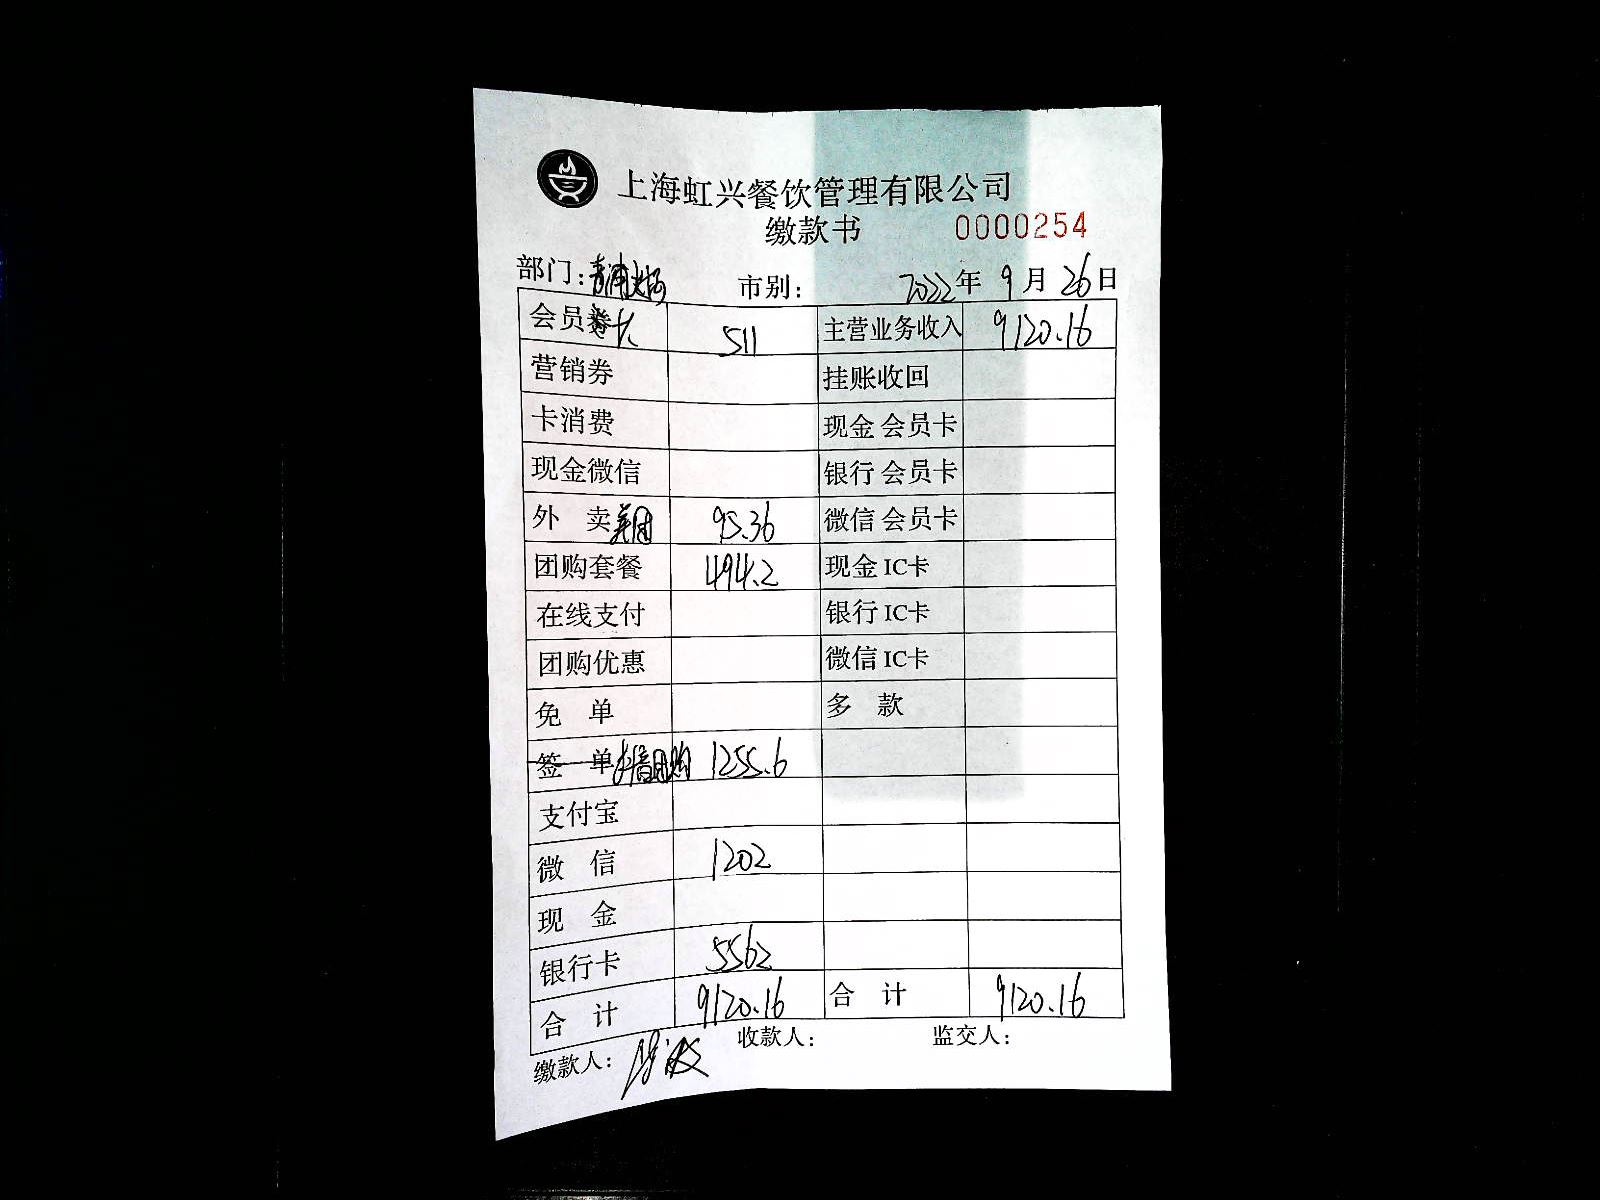 上海虹兴餐饮管理有限公司
缴款书 0000254
部门: 青浦 市别: 2022年 9月 26日
会员卡 511 主营业务收入 9120.16
营销券 挂账收回
卡消费 现金 会员卡
现金微信 银行 会员卡
外 卖 美团 95.36 微信 会员卡
团购套餐 494.2 现金 IC卡
在线支付 银行 IC卡
团购优惠 微信 IC卡
免 单 多 款
签 单 抖音团购 1255.6
支付宝
微 信 1202
现 金
银行卡 5562
合 计 9120.16 合 计 9120.16
缴款人: 收款人: 监交人: